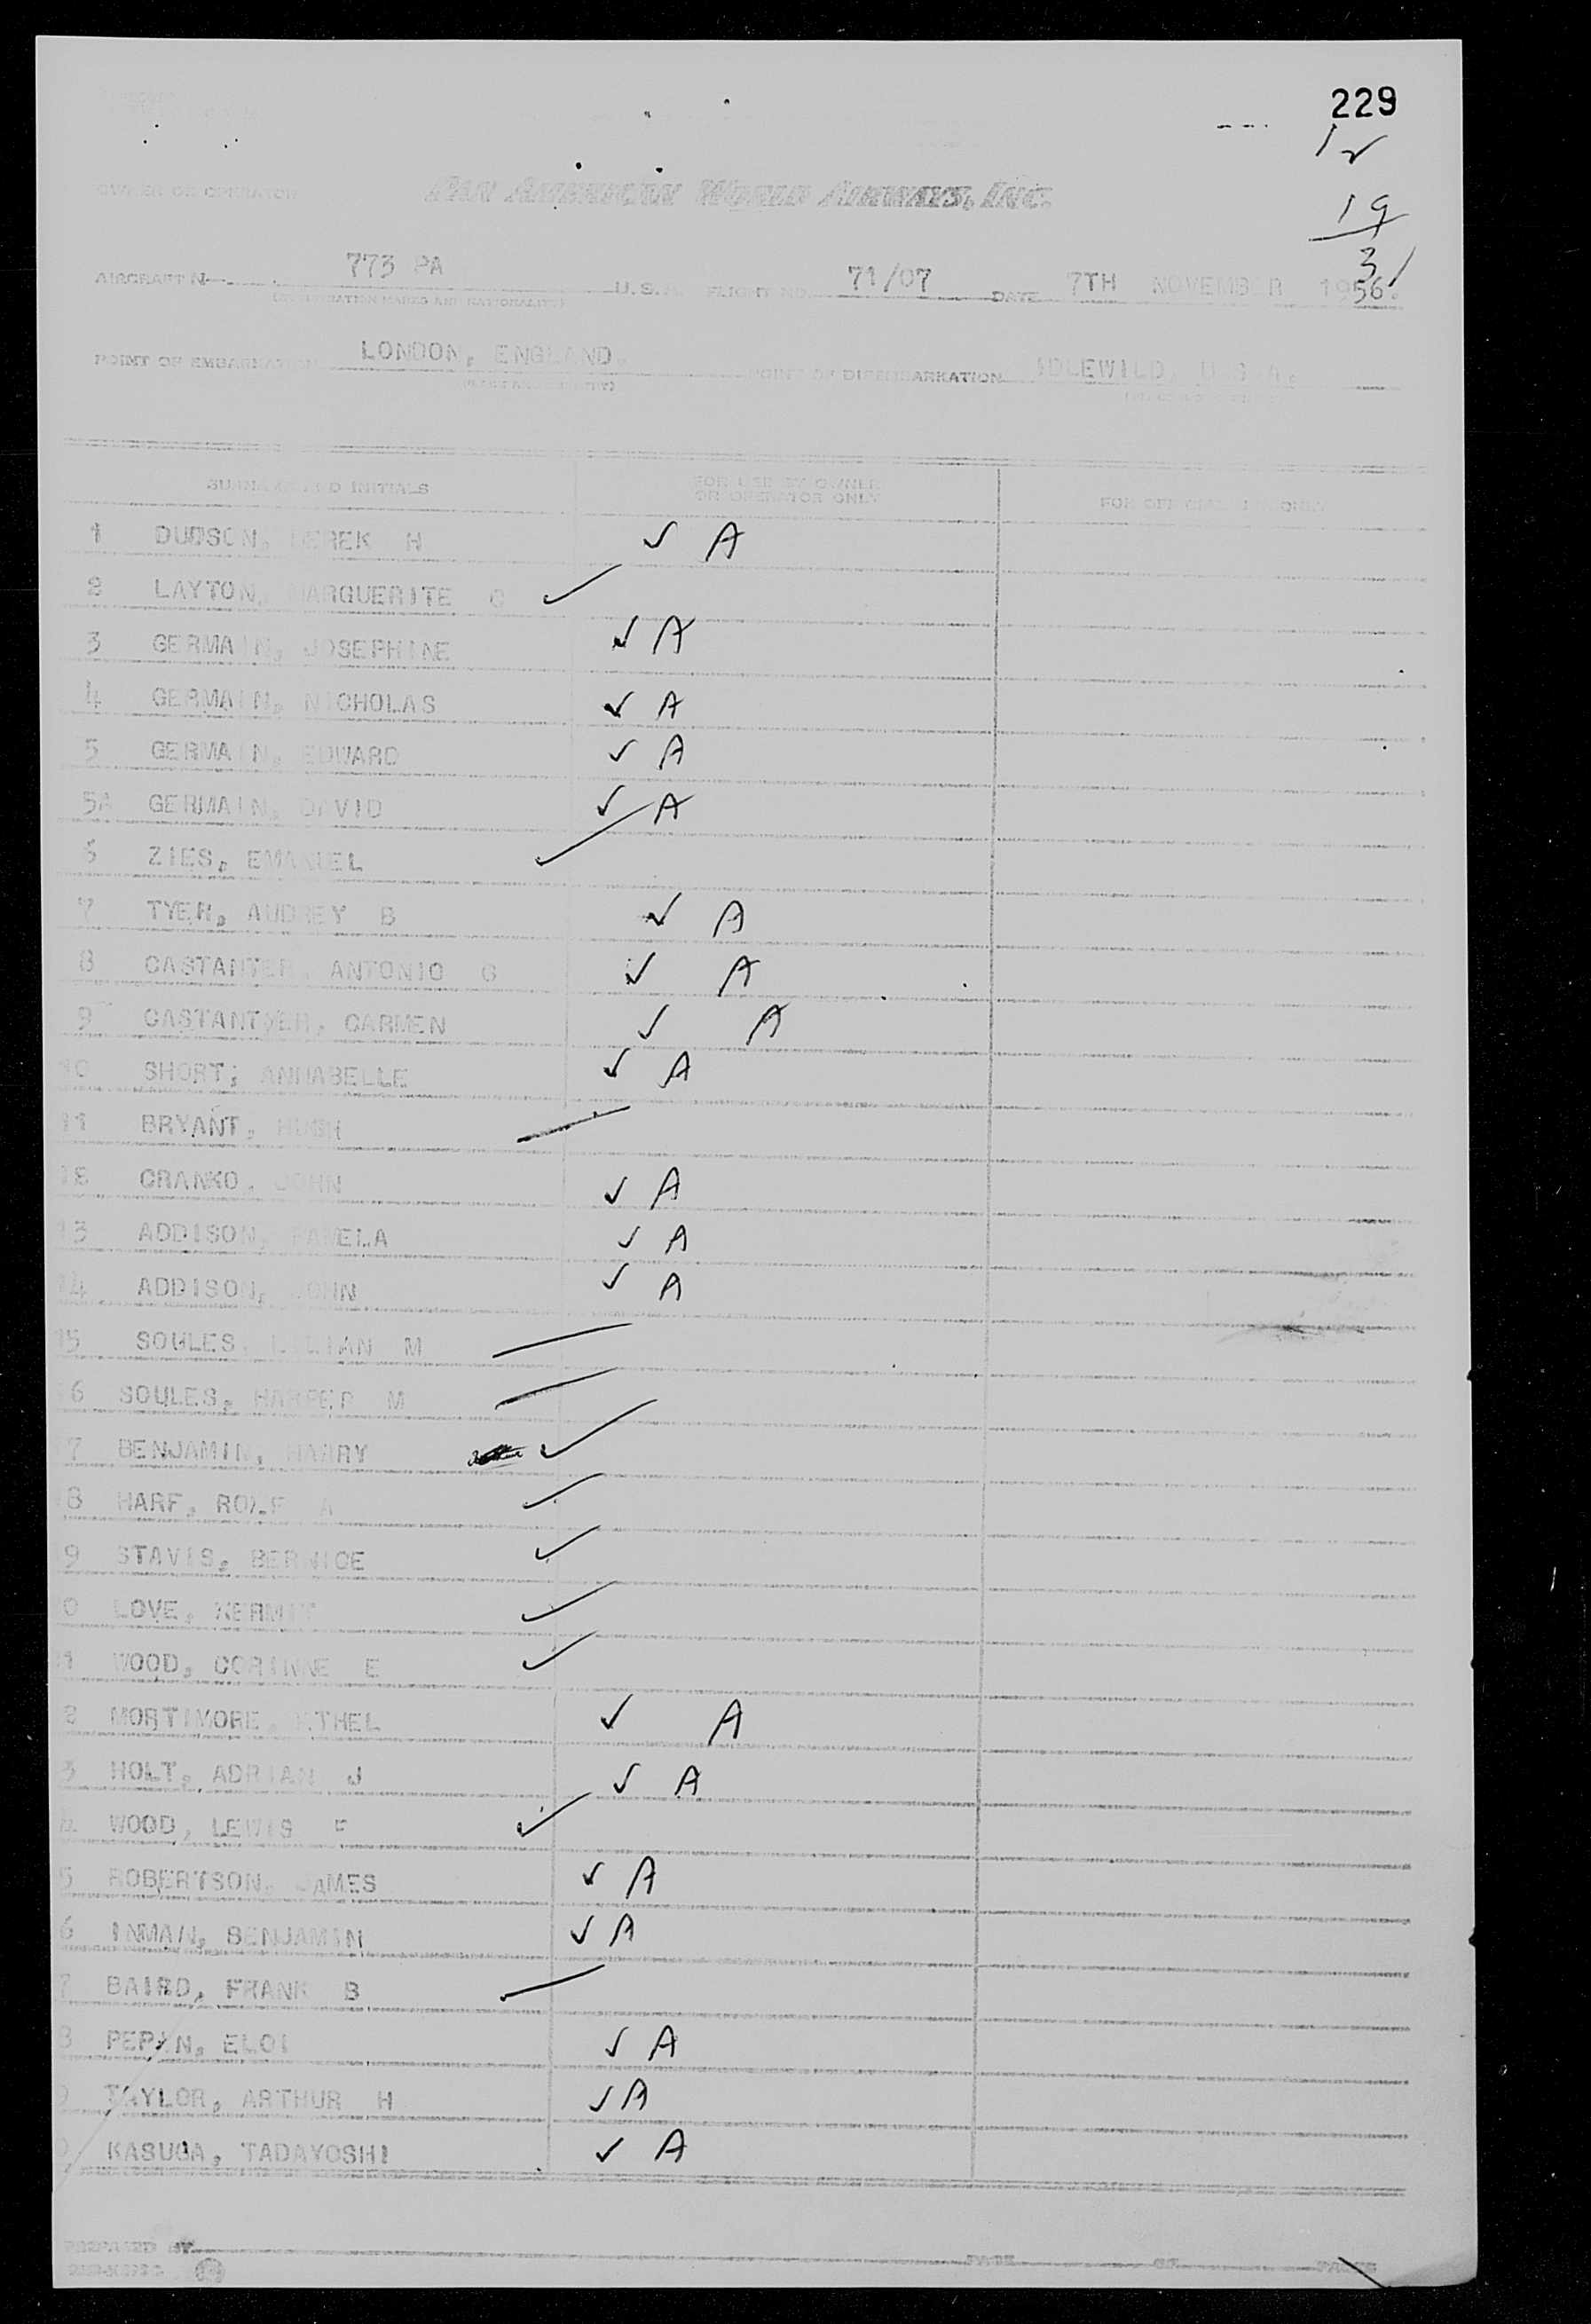 229
12
19
31
OWNER OR OPERATOR PAN AMERICAN WORLD AIRWAYS, INC.
AIRCRAFT N 773 PA U.S. FLIGHT NO. 71/07 DATE 7TH NOVEMBER 1956.
(REGISTRATION MARKS AND NATIONALITY)
POINT OF EMBARKATION LONDON, ENGLAND. POINT OF DISEMBARKATION IDLEWILD, U.S.A.
SURNAME AND INITIALS FOR USE BY OWNER OR OPERATOR ONLY FOR OFFICIAL USE ONLY
1 DUDSON, DEREK H ✓ A
2 LAYTON, MARGUERITE ✓
3 GERMAIN, JOSEPHINE ✓ A
4 GERMAIN, NICHOLAS ✓ A
5 GERMAIN, EDWARD ✓ A
5A GERMAIN, DAVID ✓ A
6 ZIES, EMANUEL ✓
7 AUDREY B ✓ A
8 ANTONIO G ✓ A
9 CARMEN ✓ A
10 SHORT; ANNABELLE ✓ A
11 BRYANT, HUGH
12 CRANKO, JOHN ✓ A
13 ADDISON, PAMELA ✓ A
14 ADDISON, JOHN ✓ A
15 SOULES, LILLIAN M
6 SOULES, HARPER M
7 BENJAMIN, HARRY ✓
8 HARF, ROLF A ✓
9 STAVIS, BERNICE ✓
0 LOVE, KERMIT ✓
1 WOOD, CORINNE E ✓
2 MORTIMORE, ETHEL ✓ A
3 HOLT, ADRIAN J ✓ A
4 WOOD, LEWIS F ✓
5 ROBERTSON, JAMES ✓ A
6 INMAN, BENJAMIN ✓ A
7 BAIRD, FRANK B
8 PEPIN, ELOI ✓ A
9 TAYLOR, ARTHUR H ✓ A
0 KASUGA, TADAYOSHI ✓ A
PREPARED BY PAGE OF PAGES